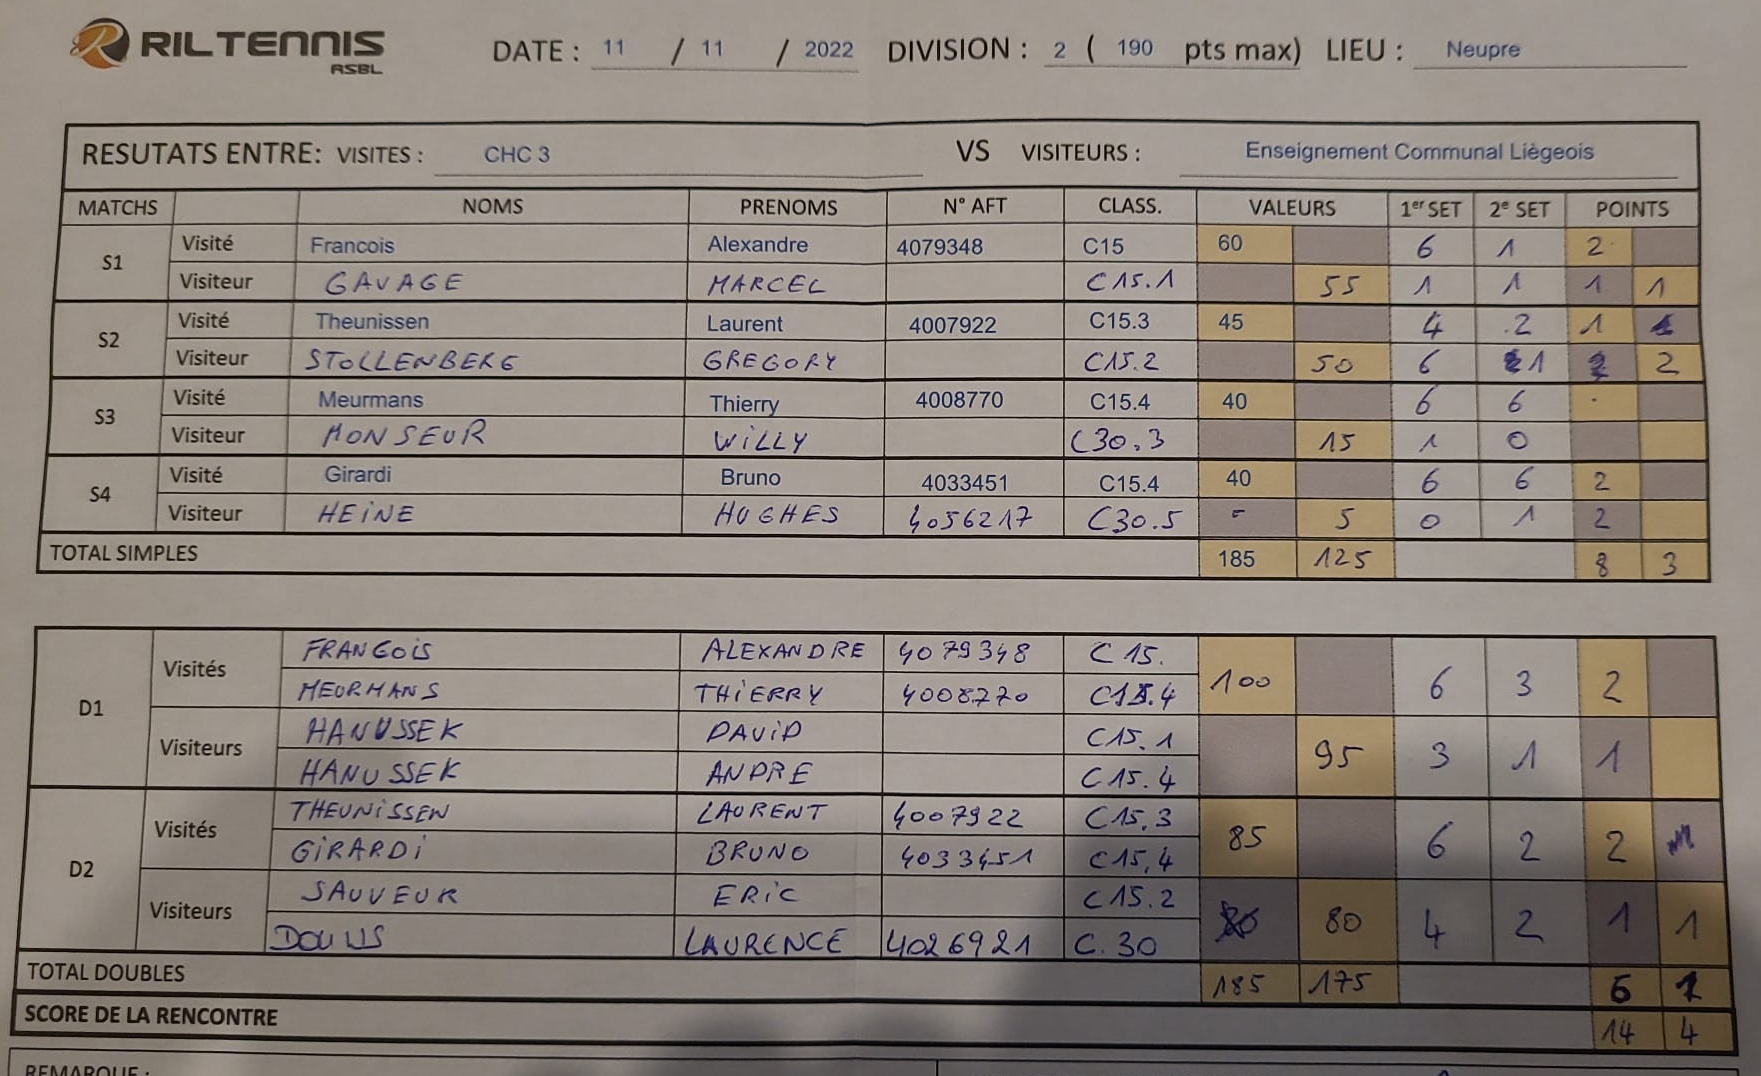 RILTENNIS
ASBL
DATE : 11 / 11 / 2022 DIVISION : 2 ( 190 pts max) LIEU : Neupre
RESUTATS ENTRE: VISITES : CHC 3 VS VISITEURS : Enseignement Communal Liègeois
MATCHS NOMS PRENOMS N° AFT CLASS. VALEURS 1er SET 2e SET POINTS
S1
Visité Francois Alexandre 4079348 C15 60 6 1 2
Visiteur GAVAGE MARCEL C15.1 55 1 1 1 1
S2
Visité Theunissen Laurent 4007922 C15.3 45 4 2 1
Visiteur STOLLENBERG GREGORY C15.2 50 6 1 2
S3
Visité Meurmans Thierry 4008770 C15.4 40 6 6
Visiteur MONSEUR WILLY C30.3 15 1 0
S4
Visité Girardi Bruno 4033451 C15.4 40 6 6 2
Visiteur HEINE HUGHES 4056217 C30.5 - 5 0 1 2
TOTAL SIMPLES 185 125 8 3
D1
Visités
FRANCOIS ALEXANDRE 4079348 C15. 100 6 3 2
MEURMANS THIERRY 4008770 C15.4
Visiteurs
HANUSSEK DAVID C15.1 95 3 1 1
HANUSSEK ANDRE C15.4
D2
Visités
THEUNISSEN LAURENT 4007922 C15.3 85 6 2 2
GIRARDI BRUNO 4033451 C15.4
Visiteurs
SAUVEUR ERIC C15.2 80 4 2 1 1
LAURENCE 4026921 C.30
TOTAL DOUBLES 185 175 6 1
SCORE DE LA RENCONTRE 14 4
REMARQUE :